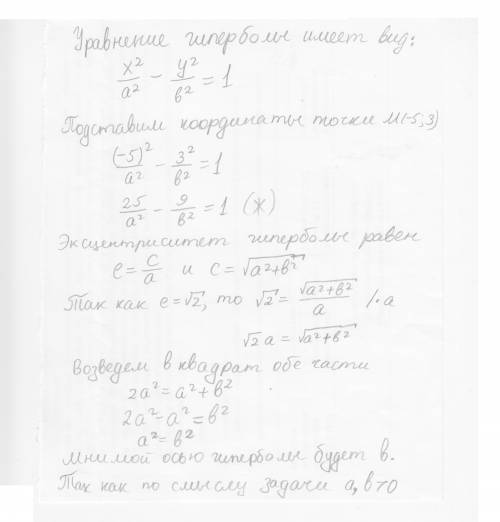 Уравнение гиперболы имеет вид:
x²/a² - y²/b² = 1
Подставим координаты точки M(-5;3)
(-5)²/a² - 3²/b² = 1
25/a² - 9/b² = 1 (ж)
Эксцентриситет гиперболы равен
e = c/a и c = √(a²+b²)
Так как e = √2, то √2 = √(a²+b²)/a /·a
√2 a = √(a²+b²)
Возведем в квадрат обе части
2a² = a² + b²
2a² - a² = b²
a² = b²
Мнимой осью гиперболы будет b.
Так как по смыслу задачи a, b > 0